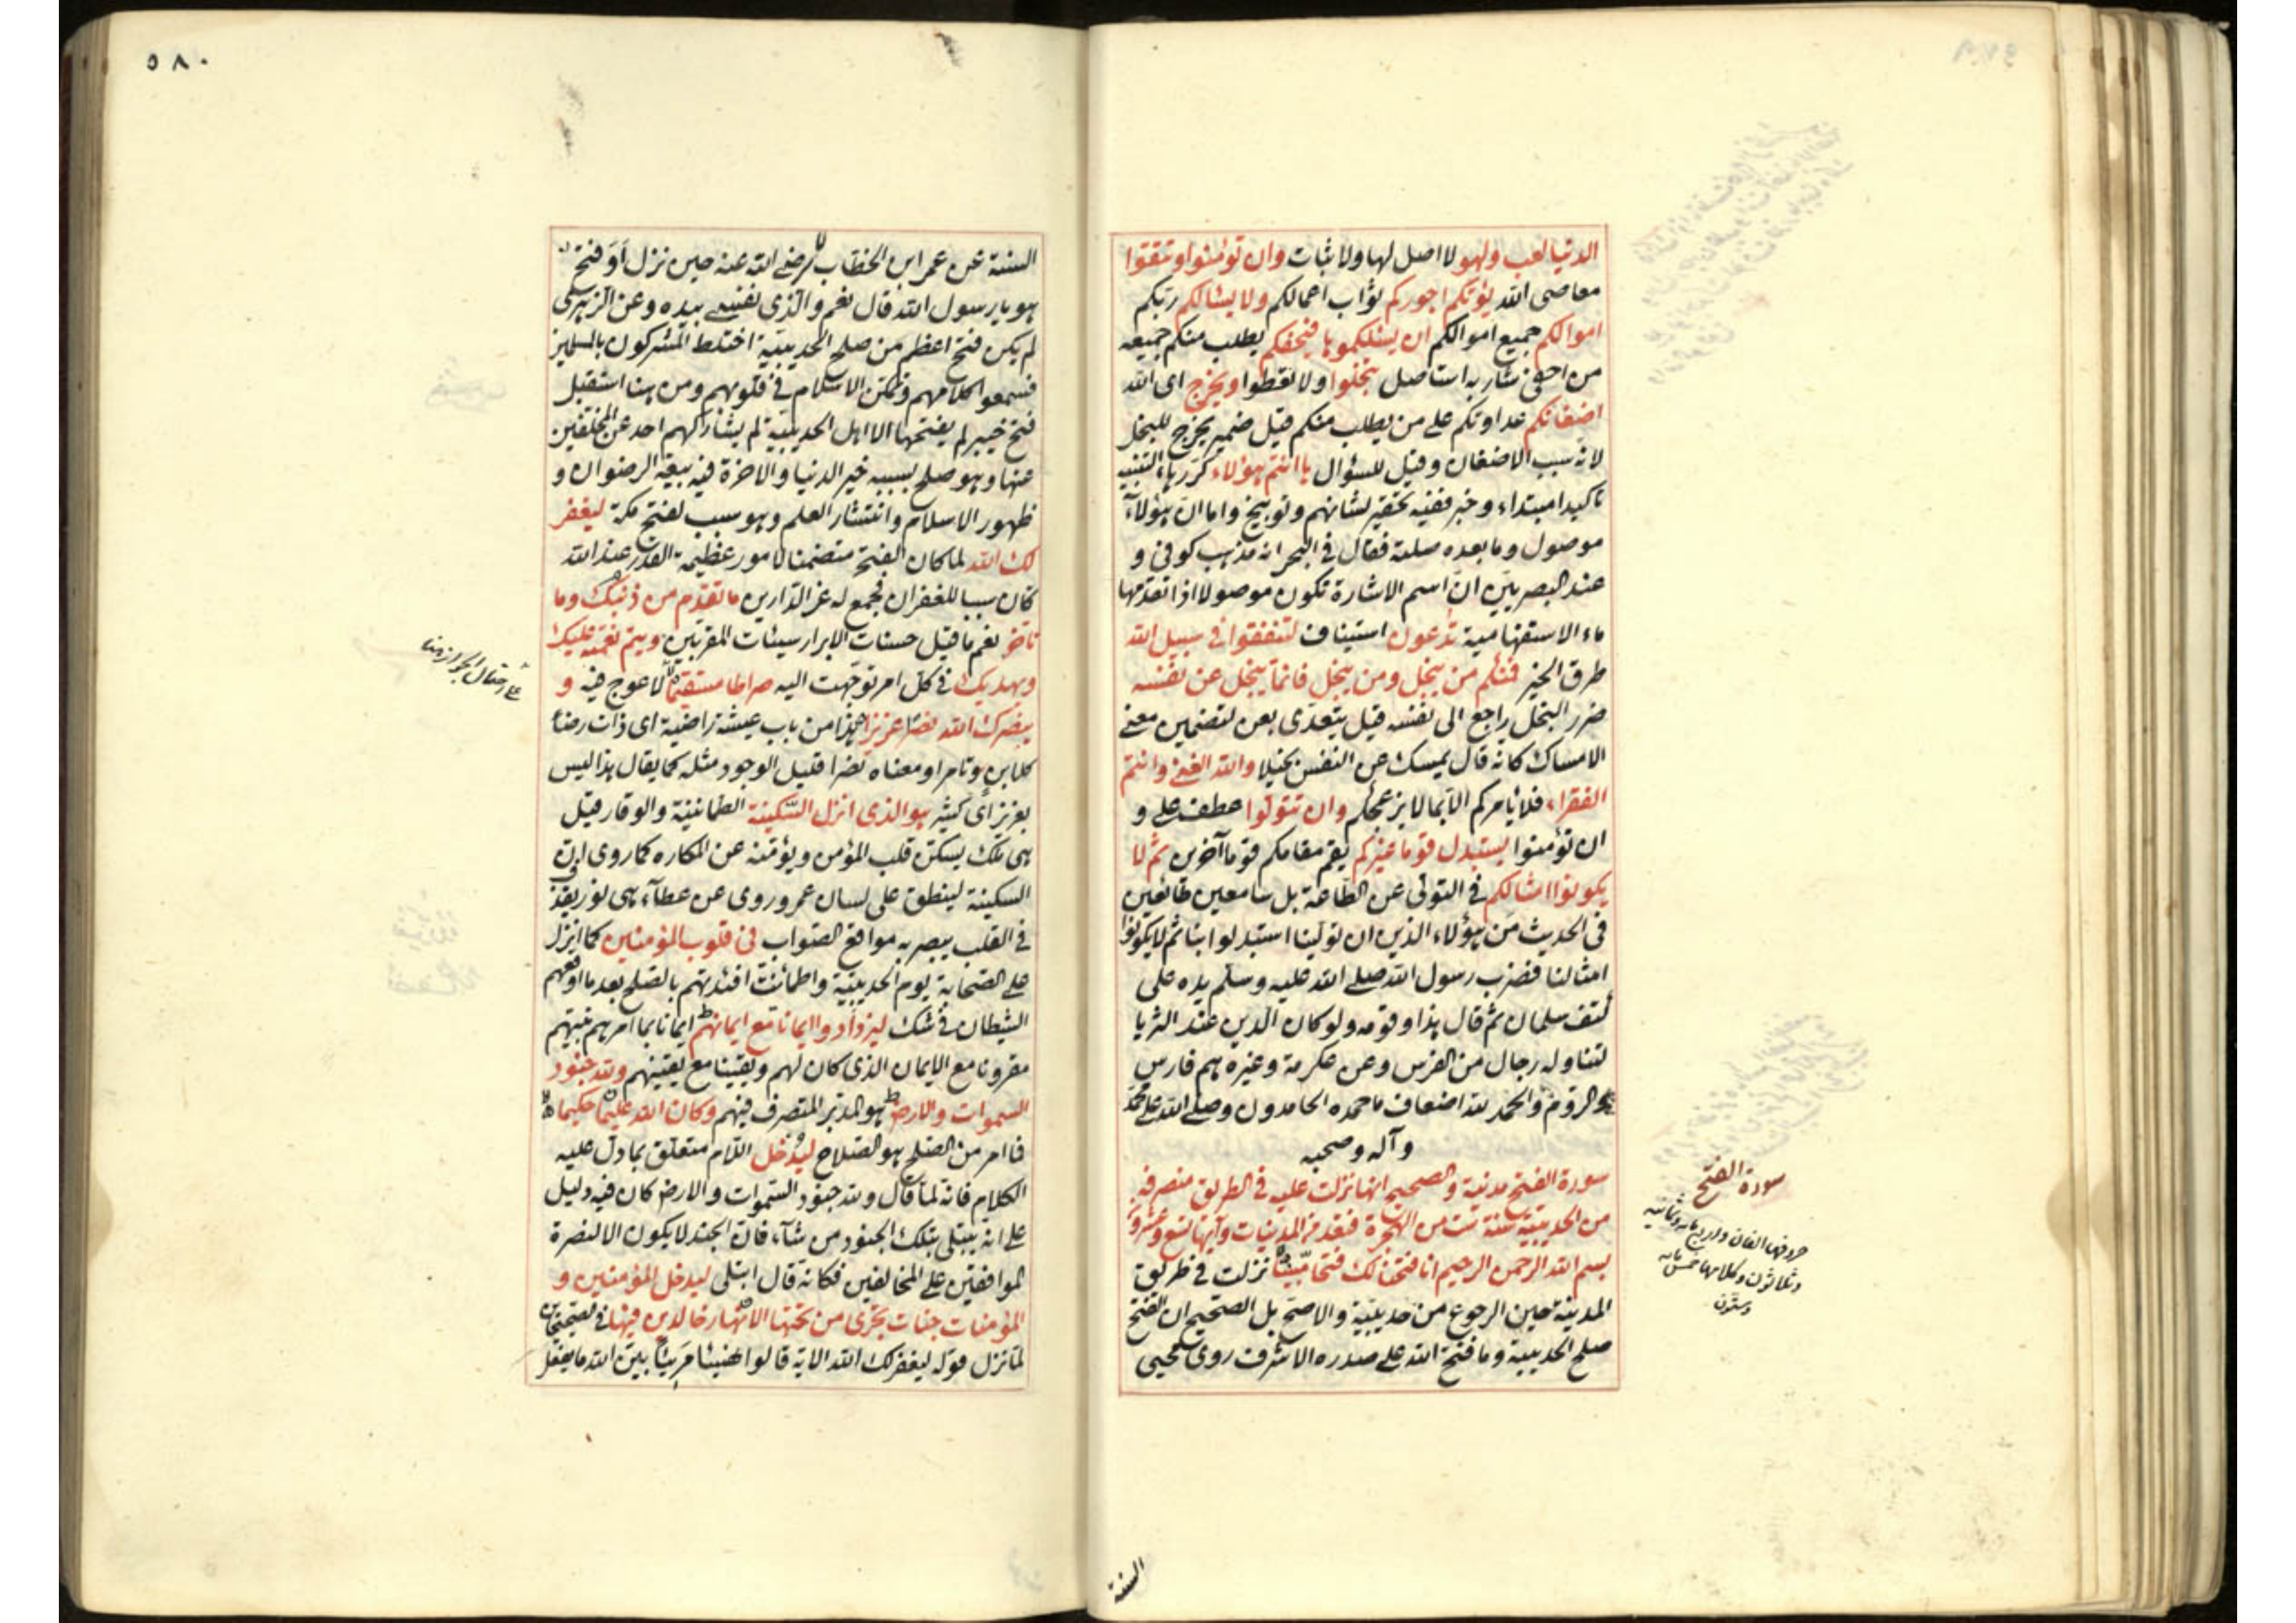 الدنيا لعب ولهو لا اصل لها ولا ثبات وان تؤمنوا وتتقوا
معاصى الله يؤتكم اجوركم ثواب اعمالكم ولا يسالكم ربكم
اموالكم جميع اموالكم ان يسئلكموها فيحفكم يطلب منكم جميعه
من احفى شاربه استاصل تبخلوا ولا تعطوا ويخرج اى الله
اضغانكم عداوتكم على من يطلب منكم قيل ضمير يخرج للبخل
لانه سبب الاضغان وقيل للسؤال ها انتم هؤلاء كرر هاء التنبيه
تاكيدا مبتداء وخبر ففيه تحقير لشانهم وتوبيخ واما ان هؤلآء
موصول وما بعده صلته فقال فى البحر انه مذهب كوفى و
عند البصريين ان اسم الاشارة تكون موصولا اذا تقدمها
ماء الاستفهامية تدعون استيناف لتنفقوا فى سبيل الله
طرق الخير فمنكم من يبخل ومن يبخل فانما يبخل عن نفسه
ضرر البخل راجع الى نفسه قيل يتعدى بعن لتضمين معنى
الامساك كانه قال يمسك عن النفس بخيلا والله الغنى وانتم
الفقراء فلا يأمركم الا بما لا يزعجكم وان تتولوا عطف على و
ان تؤمنوا يستبدل قوما غيركم يقم مقامكم قوما آخرين ثم لا
يكونوا امثالكم فى التولى عن الطاعة بل سامعين طائعين
فى الحديث من هؤلاء الذين ان تولينا استبدلوا بنا ثم لا يكونوا
امثالنا فضرب رسول الله صلى الله عليه وسلم يده على
كتف سلمان ثم قال هذا وقومه ولو كان الدين عند الثريا
لتناوله رجال من الفرس وعن عكرمة وغيره هم فارس
والروم والحمد لله اضعاف ما حمده الحامدون وصلى الله على محمد
وآله وصحبه
سورة الفتح مدنية والصحيح انها نزلت عليه فى الطريق منصرفه
من الحديبية سنة ست من الهجرة فتعد من المدنيات وآيها تسع وعشرون
بسم الله الرحمن الرحيم انا فتحنا لك فتحا مبينا نزلت فى طريق
المدينة حين الرجوع من حديبية والاصح بل الصحيح ان الفتح
صلح الحديبية وما فتح الله على صدره الاشرف روى محيى
سورة الفتح
حروفها الفان واربعمائه وثمانيه
وثلاثون وكلامها خمس مايه
وستون
السنة
٥٨٠
السنة عن عمر ابن الخطاب رضى الله عنه حين نزل أو فتح
هو يا رسول الله قال نعم والذى نفسى بيده وعن الزهرى
لم يكن فتح اعظم من صلح الحديبية اختلط المشركون بالمسلمين
فسمعوا كلامهم وتمكن الاسلام فى قلوبهم ومن هنا استقبل
فتح خيبر لم يفتحها الا اهل الحديبية لم يشاركهم احد عن المخلفين
عنها وهو صلح بسببه خير الدنيا والاخرة فيه بيعة الرضوان و
ظهور الاسلام وانتشار العلم وهو سبب لفتح مكة ليغفر
لك الله لما كان الفتح متضمنا لامور عظيمة القدر عند الله
كان سببا للغفران فجمع له عز الدارين ما تقدم من ذنبك وما
تاخر نعم ما قيل حسنات الابرار سيئات المقربين ويتم نعمته عليك
ويهديك فى كل امر توجهت اليه صراطا مستقيما لا عوج فيه و
ينصرك الله نصرا عزيزا هذا من باب عيشة راضية اى ذات رضاء
كلابن وتامر او معناه نصرا قليل الوجود مثله كما يقال هذا ليس
بعزيز اى كثير هو الذى انزل السكينة الطمانينة والوقار قيل
هى ملك يسكن قلب المؤمن ويؤمنه عن المكاره كما روى ان
السكينة لينطق على لسان عمر وروى عن عطآء هى نور يقذ
فى القلب يبصر به مواقع الصواب فى قلوب المؤمنين كما انزل
على الصحابة يوم الحديبية واطمأنت افئدتهم بالصلح بعد ما اوقعهم
الشيطان فى شك ليزدادوا ايمانا مع ايمانهم ايمانا بما امرهم نبيهم
مقرونا مع الايمان الذى كان لهم ويقينا مع يقينهم ولله جنود
السموات والارض هو المدبر المتصرف فيهم وكان الله عليما حكيما
فما امر من الصلح هو الصلاح ليدخل اللام متعلق بما دل عليه
الكلام فانه لما قال ولله جنود السموات والارض كان فيه دليل
على انه يبتلى بتلك الجنود من شآء فان الجند لا يكون الا لنصرة
الموافقين على المخالفين فكانه قال ابتلى ليدخل المؤمنين و
المؤمنات جنات تجرى من تحتها الانهار خالدين فيها فى الصحيحين
لما نزل قوله ليغفر لك الله الاية قالوا هنيئا مريئا بين الله ما يفعل